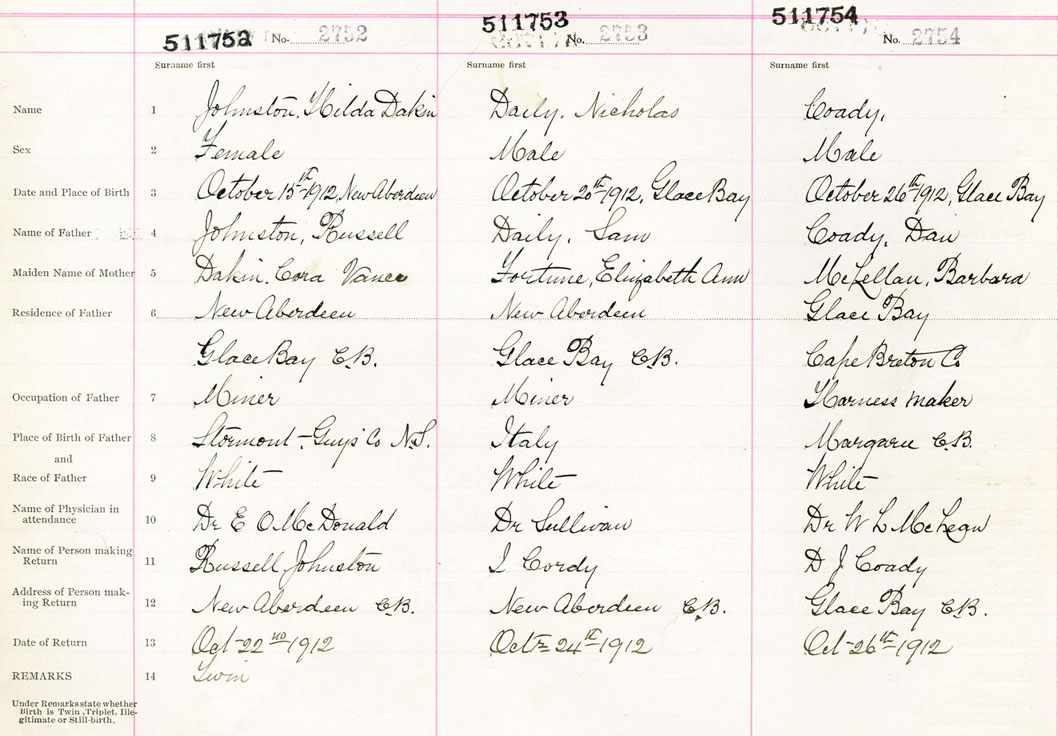 511752 No. 2752 511753 No. 2753 511754 No. 2754
Surname first Surname first Surname first
Name 1 Johnston, Hilda Dakin Daily, Nicholas Coady,
Sex 2 Female Male Male
Date and Place of Birth 3 October 15th 1912, New Aberdeen October 20th 1912, Glace Bay October 26th 1912, Glace Bay
Name of Father 4 Johnston, Russell Daily, Sam Coady, Dan
Maiden Name of Mother 5 Dakin, Cora Vance Fortune, Elizabeth Ann McLellan, Barbara
Residence of Father 6 New Aberdeen New Aberdeen Glace Bay
Glace Bay C.B. Glace Bay C.B. Cape Breton Co
Occupation of Father 7 Miner Miner Harness maker
Place of Birth of Father 8 Stormont - Guys Co N.S. Italy Margaree C.B.
and
Race of Father 9 White White White
Name of Physician in
attendance 10 Dr E O McDonald Dr Sullivan Dr W L McLean
Name of Person making
Return 11 Russell Johnston I Cordy D J Coady
Address of Person mak-
ing Return 12 New Aberdeen C.B. New Aberdeen C.B. Glace Bay C.B.
Date of Return 13 Oct-22nd-1912 Oct= 24th 1912 Oct-26th-1912
REMARKS 14 Twin
Under Remarks state whether
Birth is Twin, Triplet, Ille-
gitimate or Still-birth.